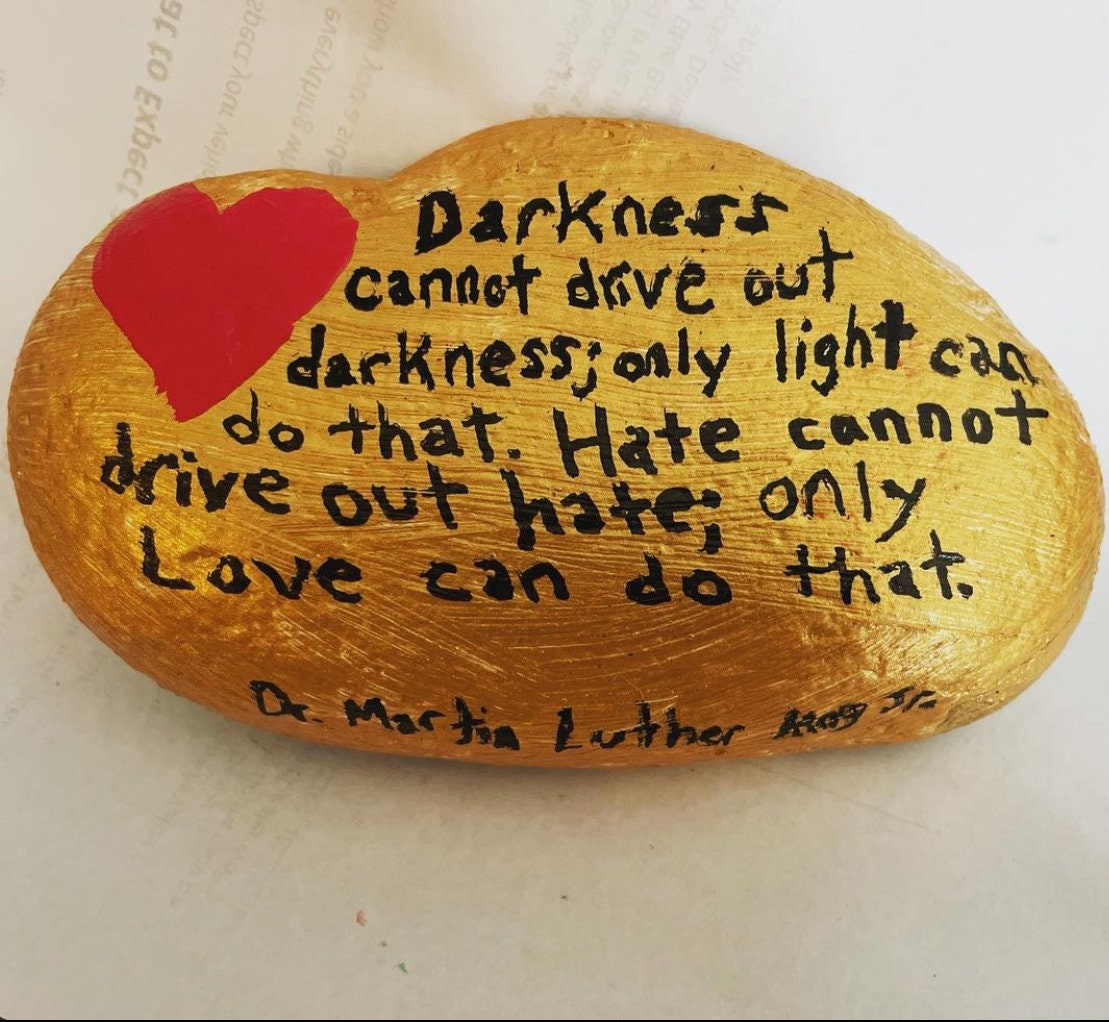 Darkness
cannot drive out
darkness; only light can
do that. Hate cannot
drive out hate; only
Love can do that.
Dr. Martin Luther King Jr.
at to Expect
spect your vehi
everything wh
show you a side